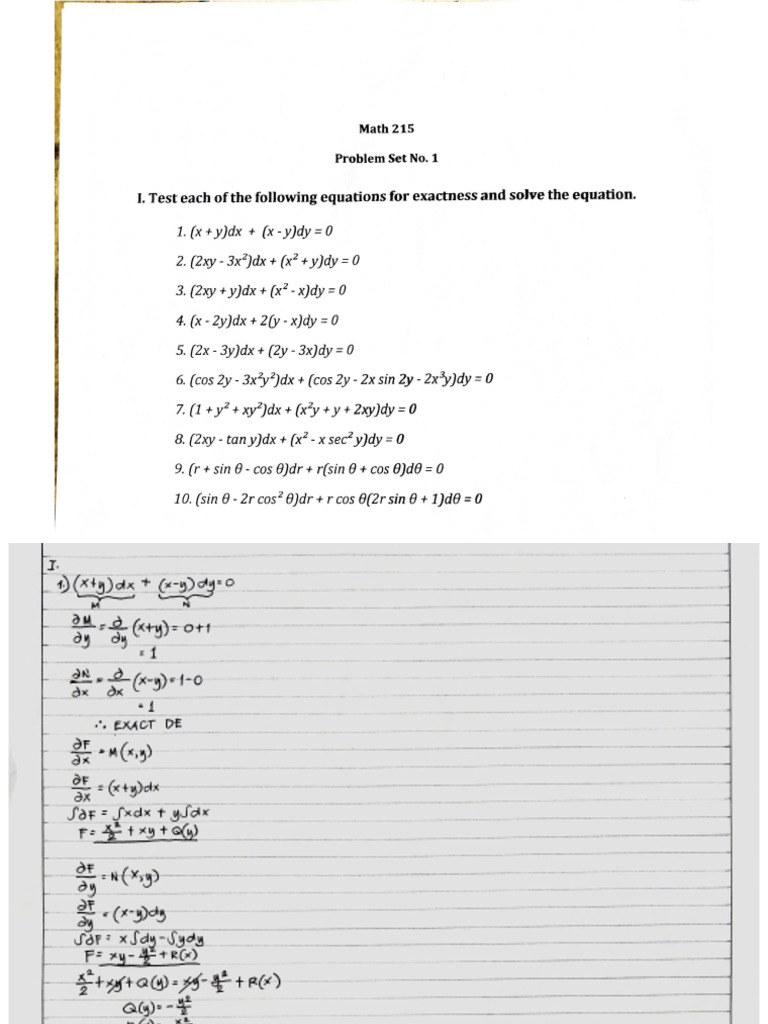 Math 215
Problem Set No. 1
I. Test each of the following equations for exactness and solve the equation.
1. (x + y)dx + (x - y)dy = 0
2. (2xy - 3x²)dx + (x² + y)dy = 0
3. (2xy + y)dx + (x² - x)dy = 0
4. (x - 2y)dx + 2(y - x)dy = 0
5. (2x - 3y)dx + (2y - 3x)dy = 0
6. (cos 2y - 3x²y²)dx + (cos 2y - 2x sin 2y - 2x³y)dy = 0
7. (1 + y² + xy²)dx + (x²y + y + 2xy)dy = 0
8. (2xy - tan y)dx + (x² - x sec² y)dy = 0
9. (r + sin θ - cos θ)dr + r(sin θ + cos θ)dθ = 0
10. (sin θ - 2r cos² θ)dr + r cos θ(2r sin θ + 1)dθ = 0
I.
1.) (x+y)dx + (x-y)dy=0
M N
∂M/∂y = ∂/∂y (x+y) = 0+1
= 1
∂N/∂x = ∂/∂x (x-y) = 1-0
= 1
∴ EXACT DE
∂F/∂x = M(x,y)
∂F/∂x = (x+y)dx
∫∂F = ∫xdx + y∫dx
F = x²/2 + xy + Q(y)
∂F/∂y = N(x,y)
∂F/∂y = (x-y)dy
∫∂F = x∫dy - ∫ydy
F = xy - y²/2 + R(x)
x²/2 + xy + Q(y) = xy - y²/2 + R(x)
Q(y) = - y²/2